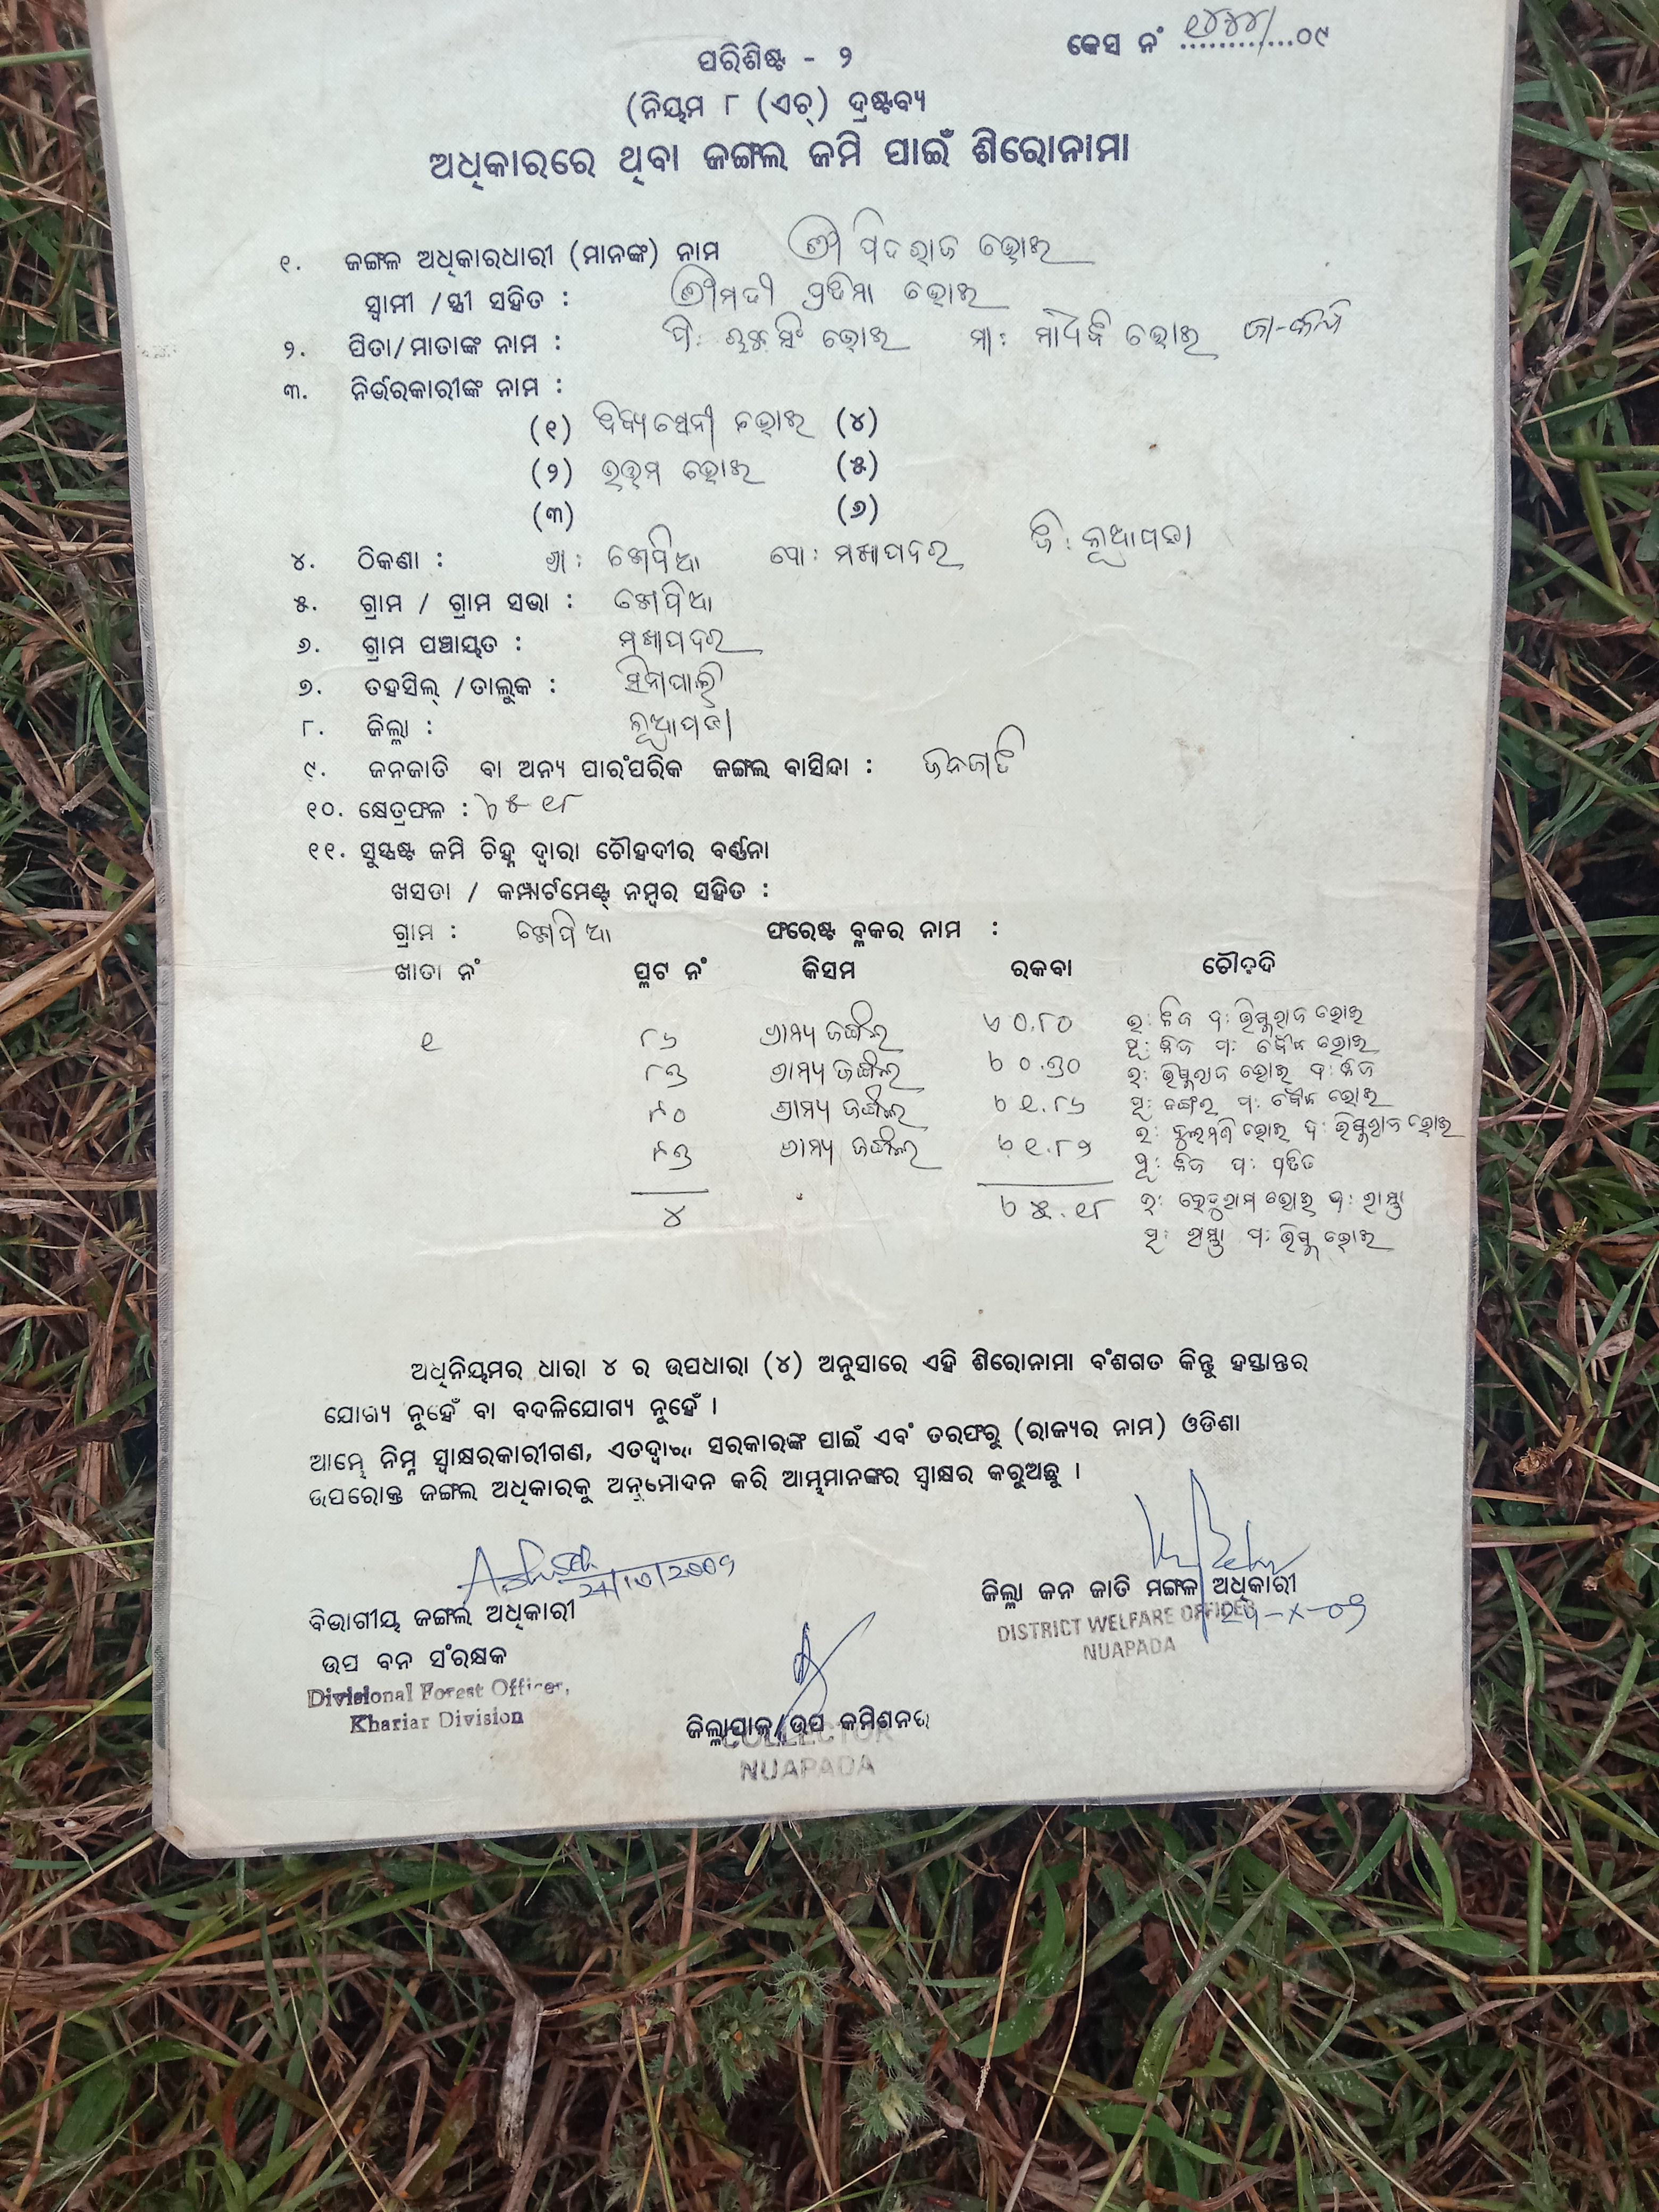 କେସ ନଂ ୧୪୪୪/୦୯
ପରିଶିଷ୍ଟ - ୨
(ନିୟମ ୮ (ଏଚ୍) ଦ୍ରଷ୍ଟବ୍ୟ
ଅଧିକାରରେ ଥିବା ଜଙ୍ଗଲ ଜମି ପାଇଁ ଶିରୋନାମା
୧. ଜଙ୍ଗଳ ଅଧିକାରଧାରୀ (ମାନଙ୍କ) ନାମ ଶ୍ରୀ ଭୋଇ
ସ୍ୱାମୀ /ସ୍ତ୍ରୀ ସହିତ : ଶ୍ରୀମତୀ ପ୍ରତିମା ଭୋଇ
୨. ପିତା/ମାତାଙ୍କ ନାମ : ପି: ଭୋଇ ମା: ଭୋଇ
୩. ନିର୍ଭରକାରୀଙ୍କ ନାମ :
(୧) ଭୋଇ (୪)
(୨) ଉତ୍ତମ ଭୋଇ (୫)
(୩) (୬)
୪. ଠିକଣା : ଗ୍ରା: ପୋ: ମଖାପଦର ଜି: ନୂଆପଡା
୫. ଗ୍ରାମ / ଗ୍ରାମ ସଭା :
୬. ଗ୍ରାମ ପଞ୍ଚାୟତ : ମଖାପଦର
୭. ତହସିଲ୍ /ତାଲୁକ : ସିନାପାଲି
୮. ଜିଲ୍ଲା : ନୂଆପଡା
୯. ଜନଜାତି ବା ଅନ୍ୟ ପାରଂପରିକ ଜଙ୍ଗଲ ବାସିନ୍ଦା : ଜନଜାତି
୧୦. କ୍ଷେତ୍ରଫଳ : ୫.୧୮
୧୧. ସୁସ୍ପଷ୍ଟ ଜମି ଚିହ୍ନ ଦ୍ୱାରା ଚୌହଦୀର ବର୍ଣ୍ଣନା
ଖସଡା / କମ୍ପାର୍ଟମେଣ୍ଟ୍ ନମ୍ବର ସହିତ :
ଗ୍ରାମ : ଫରେଷ୍ଟ ବ୍ଲକର ନାମ :
ଖାତା ନଂ ପ୍ଲଟ ନଂ କିସମ ରକବା ଚୌହଦି
୧ ୮୬ ଗ୍ରାମ୍ୟ ଜଙ୍ଗଲ ୦.୮୦ ଉ: ନିଜ ଦ: ଭୋଇ
ପୂ: ନିଜ ପ: ଭୋଇ
୮୭ ଗ୍ରାମ୍ୟ ଜଙ୍ଗଲ ୦.୭୦ ଉ: ଭୋଇ ଦ: ନିଜ
ପୂ: ଜଙ୍ଗଲ ପ: ଭୋଇ
୯୦ ଗ୍ରାମ୍ୟ ଜଙ୍ଗଲ ୧.୮୬ ଉ: ଭୋଇ ଦ: ଭୋଇ
ପୂ: ନିଜ ପ: ପତିତ
୯୭ ଗ୍ରାମ୍ୟ ଜଙ୍ଗଲ ୧.୮୨ ଉ: ଭୋଇ ଦ: ରାସ୍ତା
୪ ୫.୧୮ ପୂ: ରାସ୍ତା ପ: ଭୋଇ
ଅଧିନିୟମର ଧାରା ୪ ର ଉପଧାରା (୪) ଅନୁସାରେ ଏହି ଶିରୋନାମା ବଂଶଗତ କିନ୍ତୁ ହସ୍ତାନ୍ତର
ଯୋଗ୍ୟ ନୁହେଁ ବା ବଦଳିଯୋଗ୍ୟ ନୁହେଁ ।
ଆମ୍ଭେ ନିମ୍ନ ସ୍ୱାକ୍ଷରକାରୀଗଣ, ଏତଦ୍ୱାରା ସରକାରଙ୍କ ପାଇଁ ଏବଂ ତରଫରୁ (ରାଜ୍ୟର ନାମ) ଓଡିଶା
ଉପରୋକ୍ତ ଜଙ୍ଗଲ ଅଧିକାରକୁ ଅନୁମୋଦନ କରି ଆମ୍ଭମାନଙ୍କର ସ୍ୱାକ୍ଷର କରୁଅଛୁ ।
24/10/2009
ବିଭାଗୀୟ ଜଙ୍ଗଲ ଅଧିକାରୀ
ଉପ ବନ ସଂରକ୍ଷକ
Divisional Forest Officer,
Khariar Division
ଜିଲ୍ଲାପାଳ/ଉପ କମିଶନର
COLLECTOR
NUAPADA
ଜିଲ୍ଲା ଜନ ଜାତି ମଙ୍ଗଳ ଅଧିକାରୀ
DISTRICT WELFARE OFFICER
NUAPADA